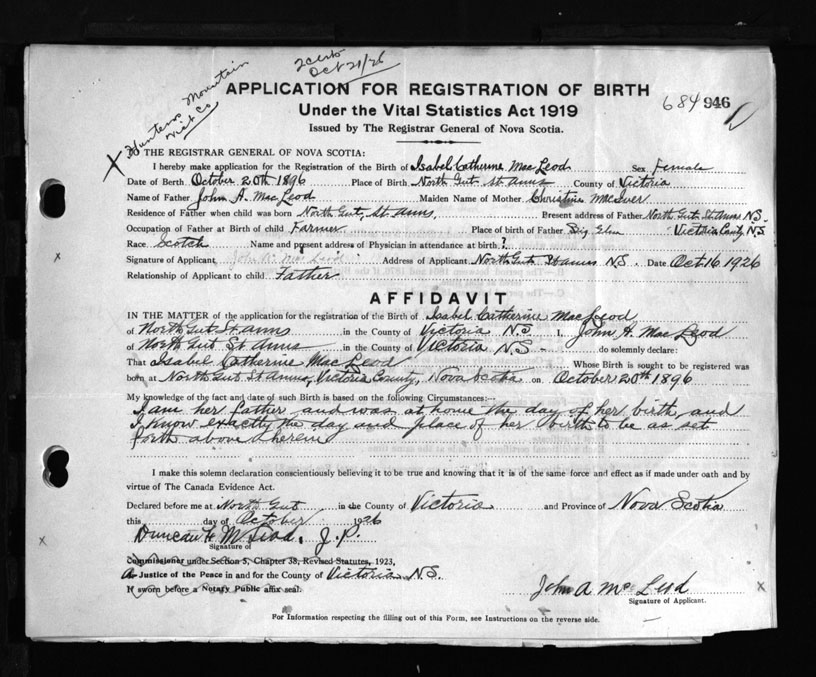 2 certs
Oct 21/26
Hunters Mountain
Vict Co
APPLICATION FOR REGISTRATION OF BIRTH
684 946
Under the Vital Statistics Act 1919
Issued by The Registrar General of Nova Scotia.
X TO THE REGISTRAR GENERAL OF NOVA SCOTIA:
I hereby make application for the Registration of the Birth of Isabel Catherine MacLeod Sex Female
Date of Birth October 20th 1896 Place of Birth North Gut St Anns County of Victoria
Name of Father John A. MacLeod Maiden Name of Mother Christine McIver
Residence of Father when child was born North Gut, St Anns, Present address of Father North Gut St Anns N.S.
Occupation of Father at Birth of child Farmer Place of birth of Father Big Glen Victoria County N.S
Race Scotch Name and present address of Physician in attendance at birth ?
Signature of Applicant John A. MacLeod Address of Applicant North Gut St Anns N.S. Date Oct 16 1926
Relationship of Applicant to child Father
AFFIDAVIT
IN THE MATTER of the application for the registration of the Birth of Isabel Catherine MacLeod
of North Gut St Anns in the County of Victoria N.S I, John A. MacLeod
of North Gut St Anns in the County of Victoria N.S - do solemnly declare:
That Isabel Catherine MacLeod Whose Birth is sought to be registered was
born at North Gut St Anns, Victoria County, Nova Scotia on October 20th 1896
My knowledge of the fact and date of such Birth is based on the following Circumstances:-
I am her father and was at home the day of her birth, and
I know exactly the day and place of her birth to be as set
forth above herein
I make this solemn declaration conscientiously believing it to be true and knowing that it is of the same force and effect as if made under oath and by
virtue of The Canada Evidence Act.
Declared before me at North Gut in the County of Victoria and Province of Nova Scotia
this day of October 1926
Duncan H McLeod, J.P.
Signature of
Commissioner under Section 5, Chapter 38, Revised Statutes, 1923,
A Justice of the Peace in and for the County of Victoria N.S.
If sworn before a Notary Public affix seal.
John A McLeod
Signature of Applicant.
For Information respecting the filling out of this Form, see Instructions on the reverse side.